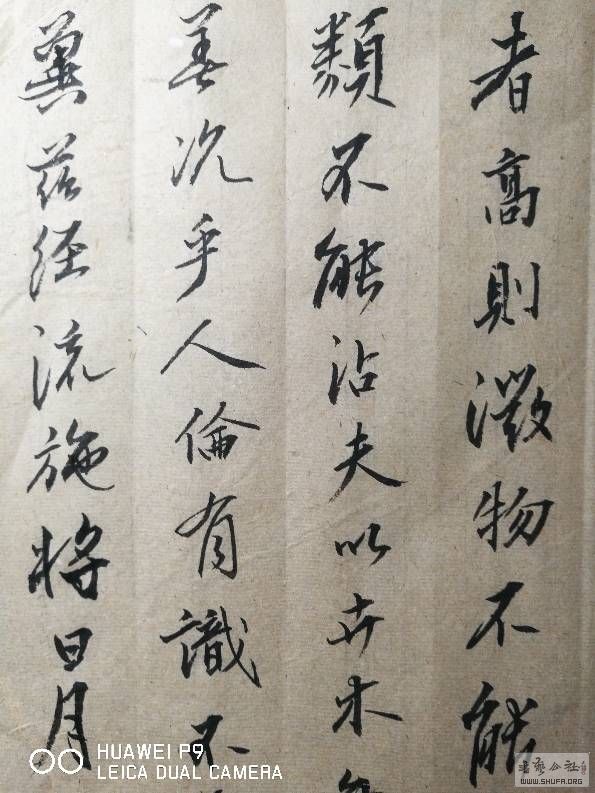 者高則微物不能
類不能沾夫以卉木
善况乎人倫有識不
冀茲経流施將日月
HUAWEI P9
LEICA DUAL CAMERA
书艺公社
WWW.SHUFA.ORG